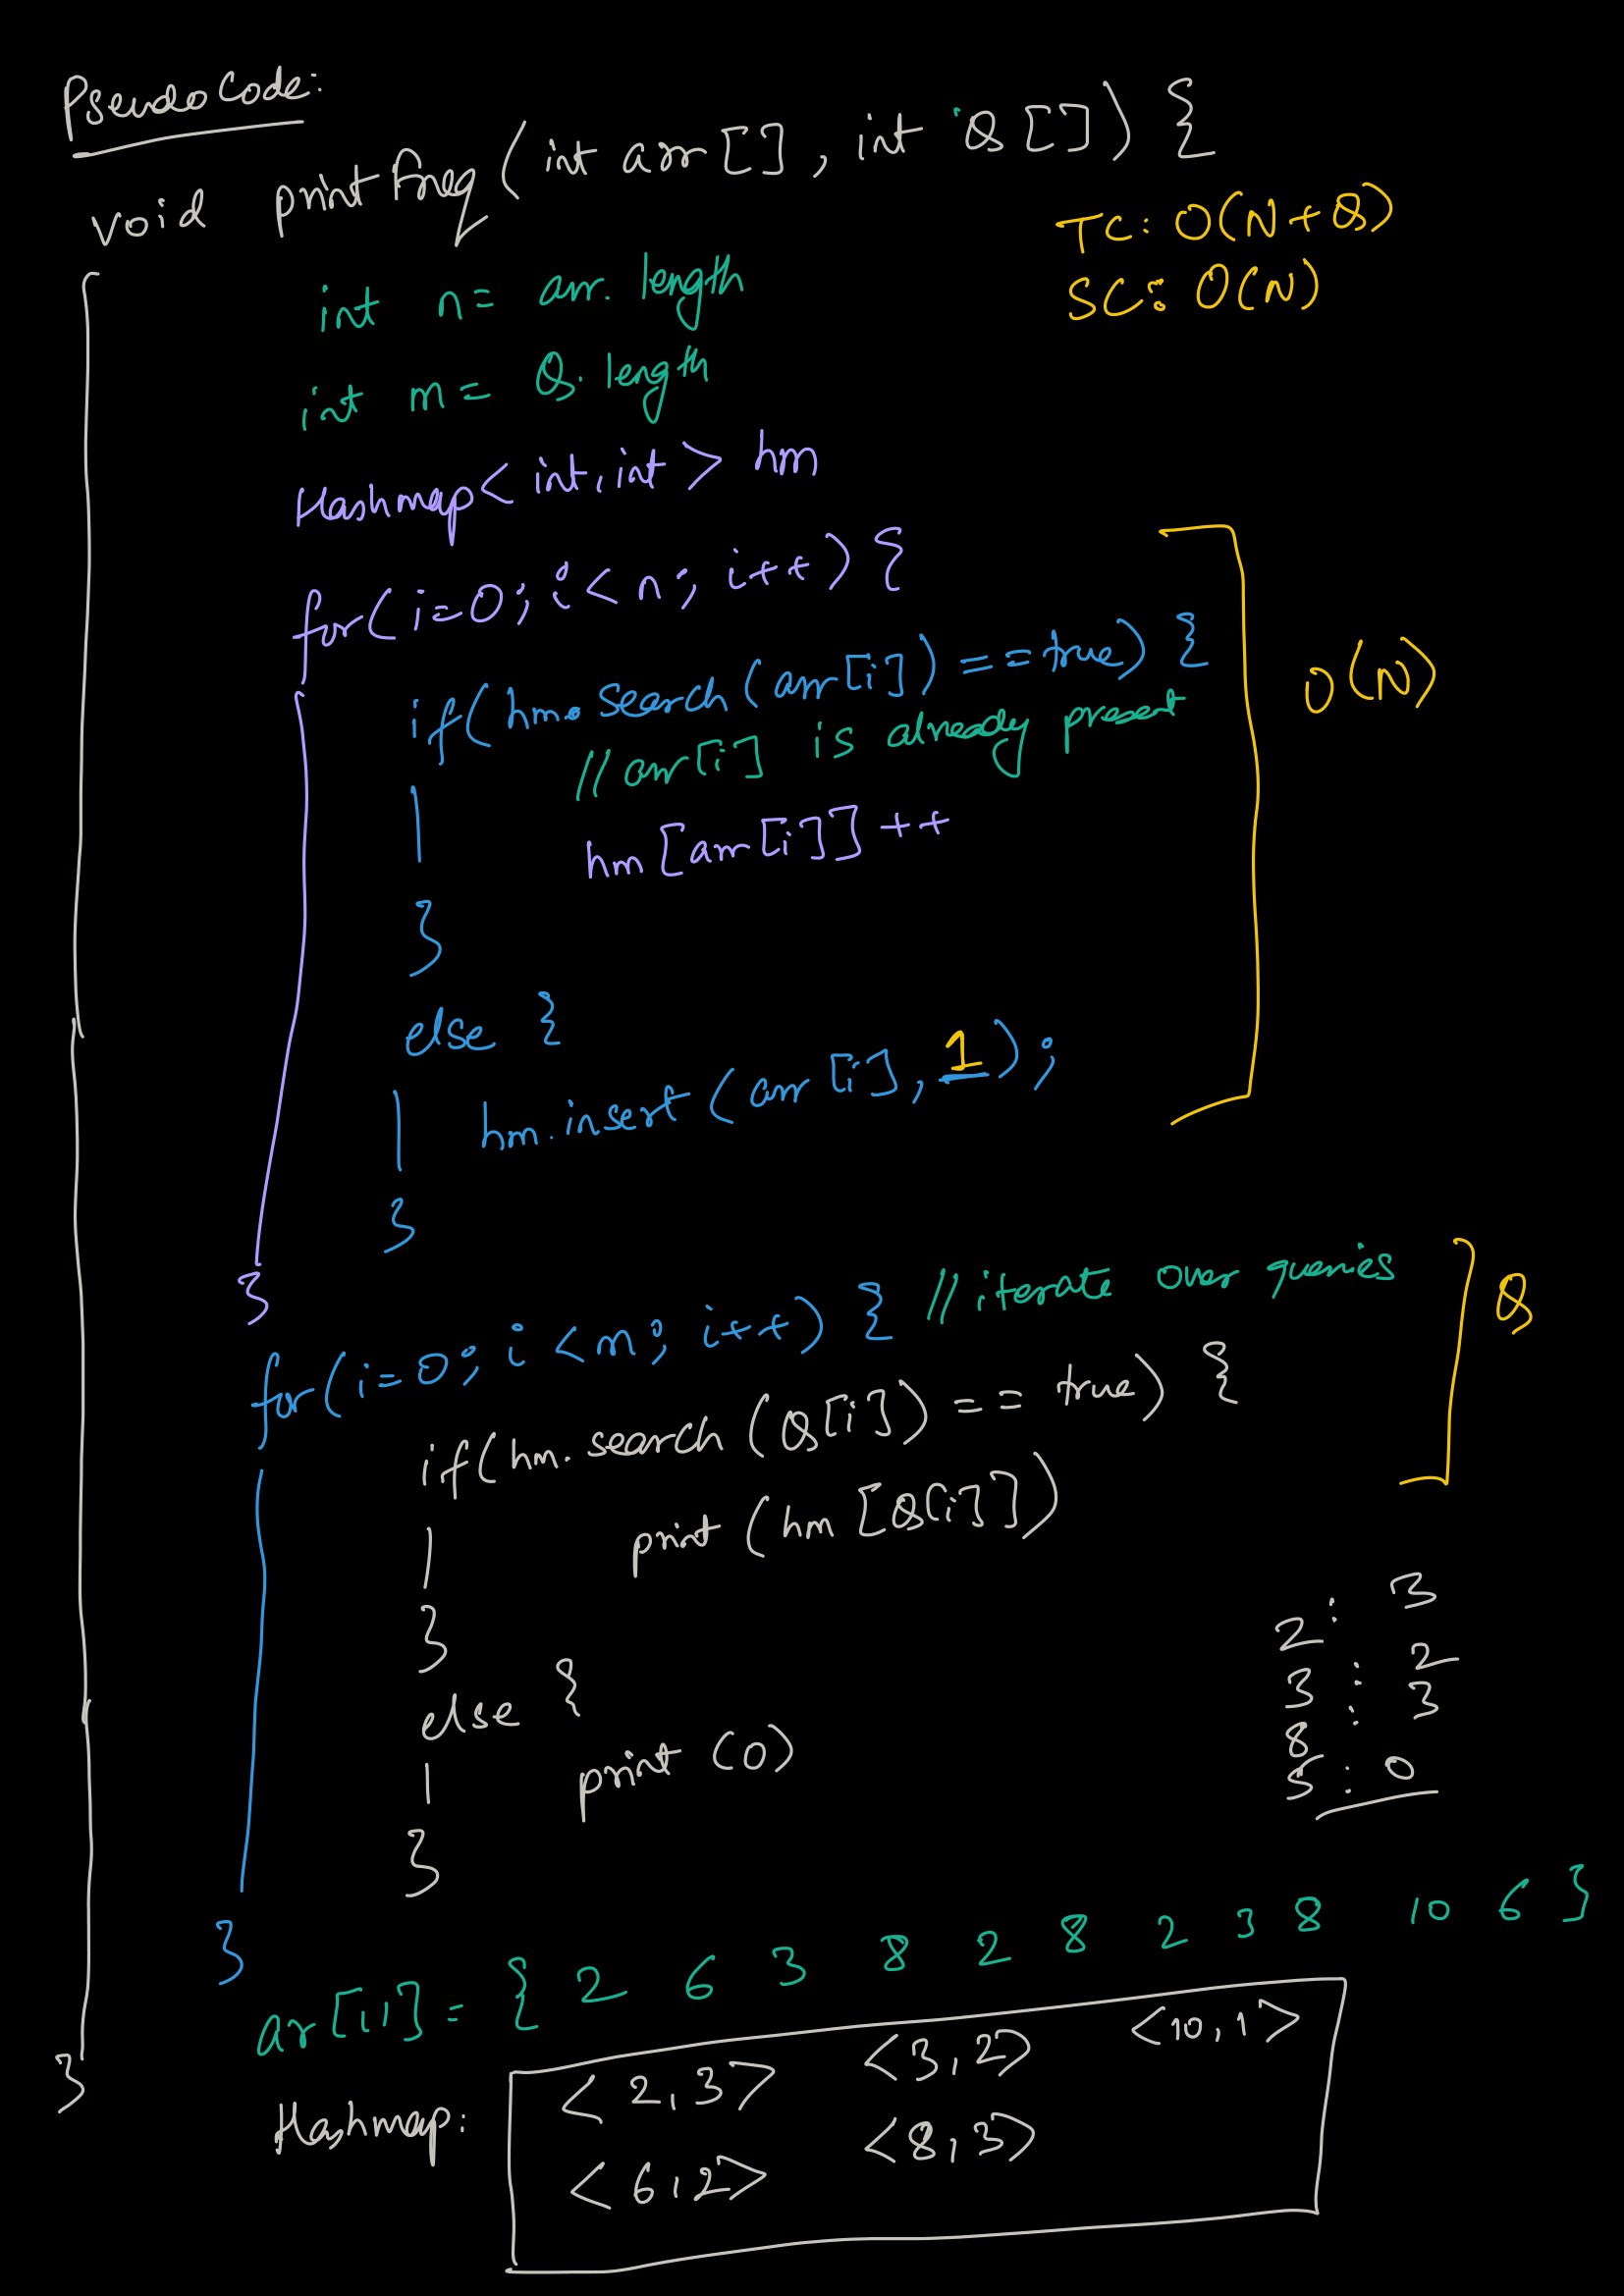 PseudoCode:
void printfreq(int arr[], int Q[]) {
TC: O(N+Q)
SC: O(N)
int n = arr.length
int m = Q.length
Hashmap<int,int> hm
for(i=0; i<n; i++) {
if(hm.search(arr[i]) == true) {
//arr[i] is already present
hm[arr[i]]++
}
else {
hm.insert(arr[i], 1);
}
}
O(N)
for(i=0; i<m; i++) { //iterate over queries
if(hm.search(Q[i]) == true) {
print(hm[Q[i]])
}
else {
print(0)
}
}
}
Q
2: 3
3: 2
8: 3
5: 0
ar[11] = { 2 6 3 8 2 8 2 3 8 10 6 }
Hashmap:
<2,3> <3,2> <10,1>
<6,2> <8,3>